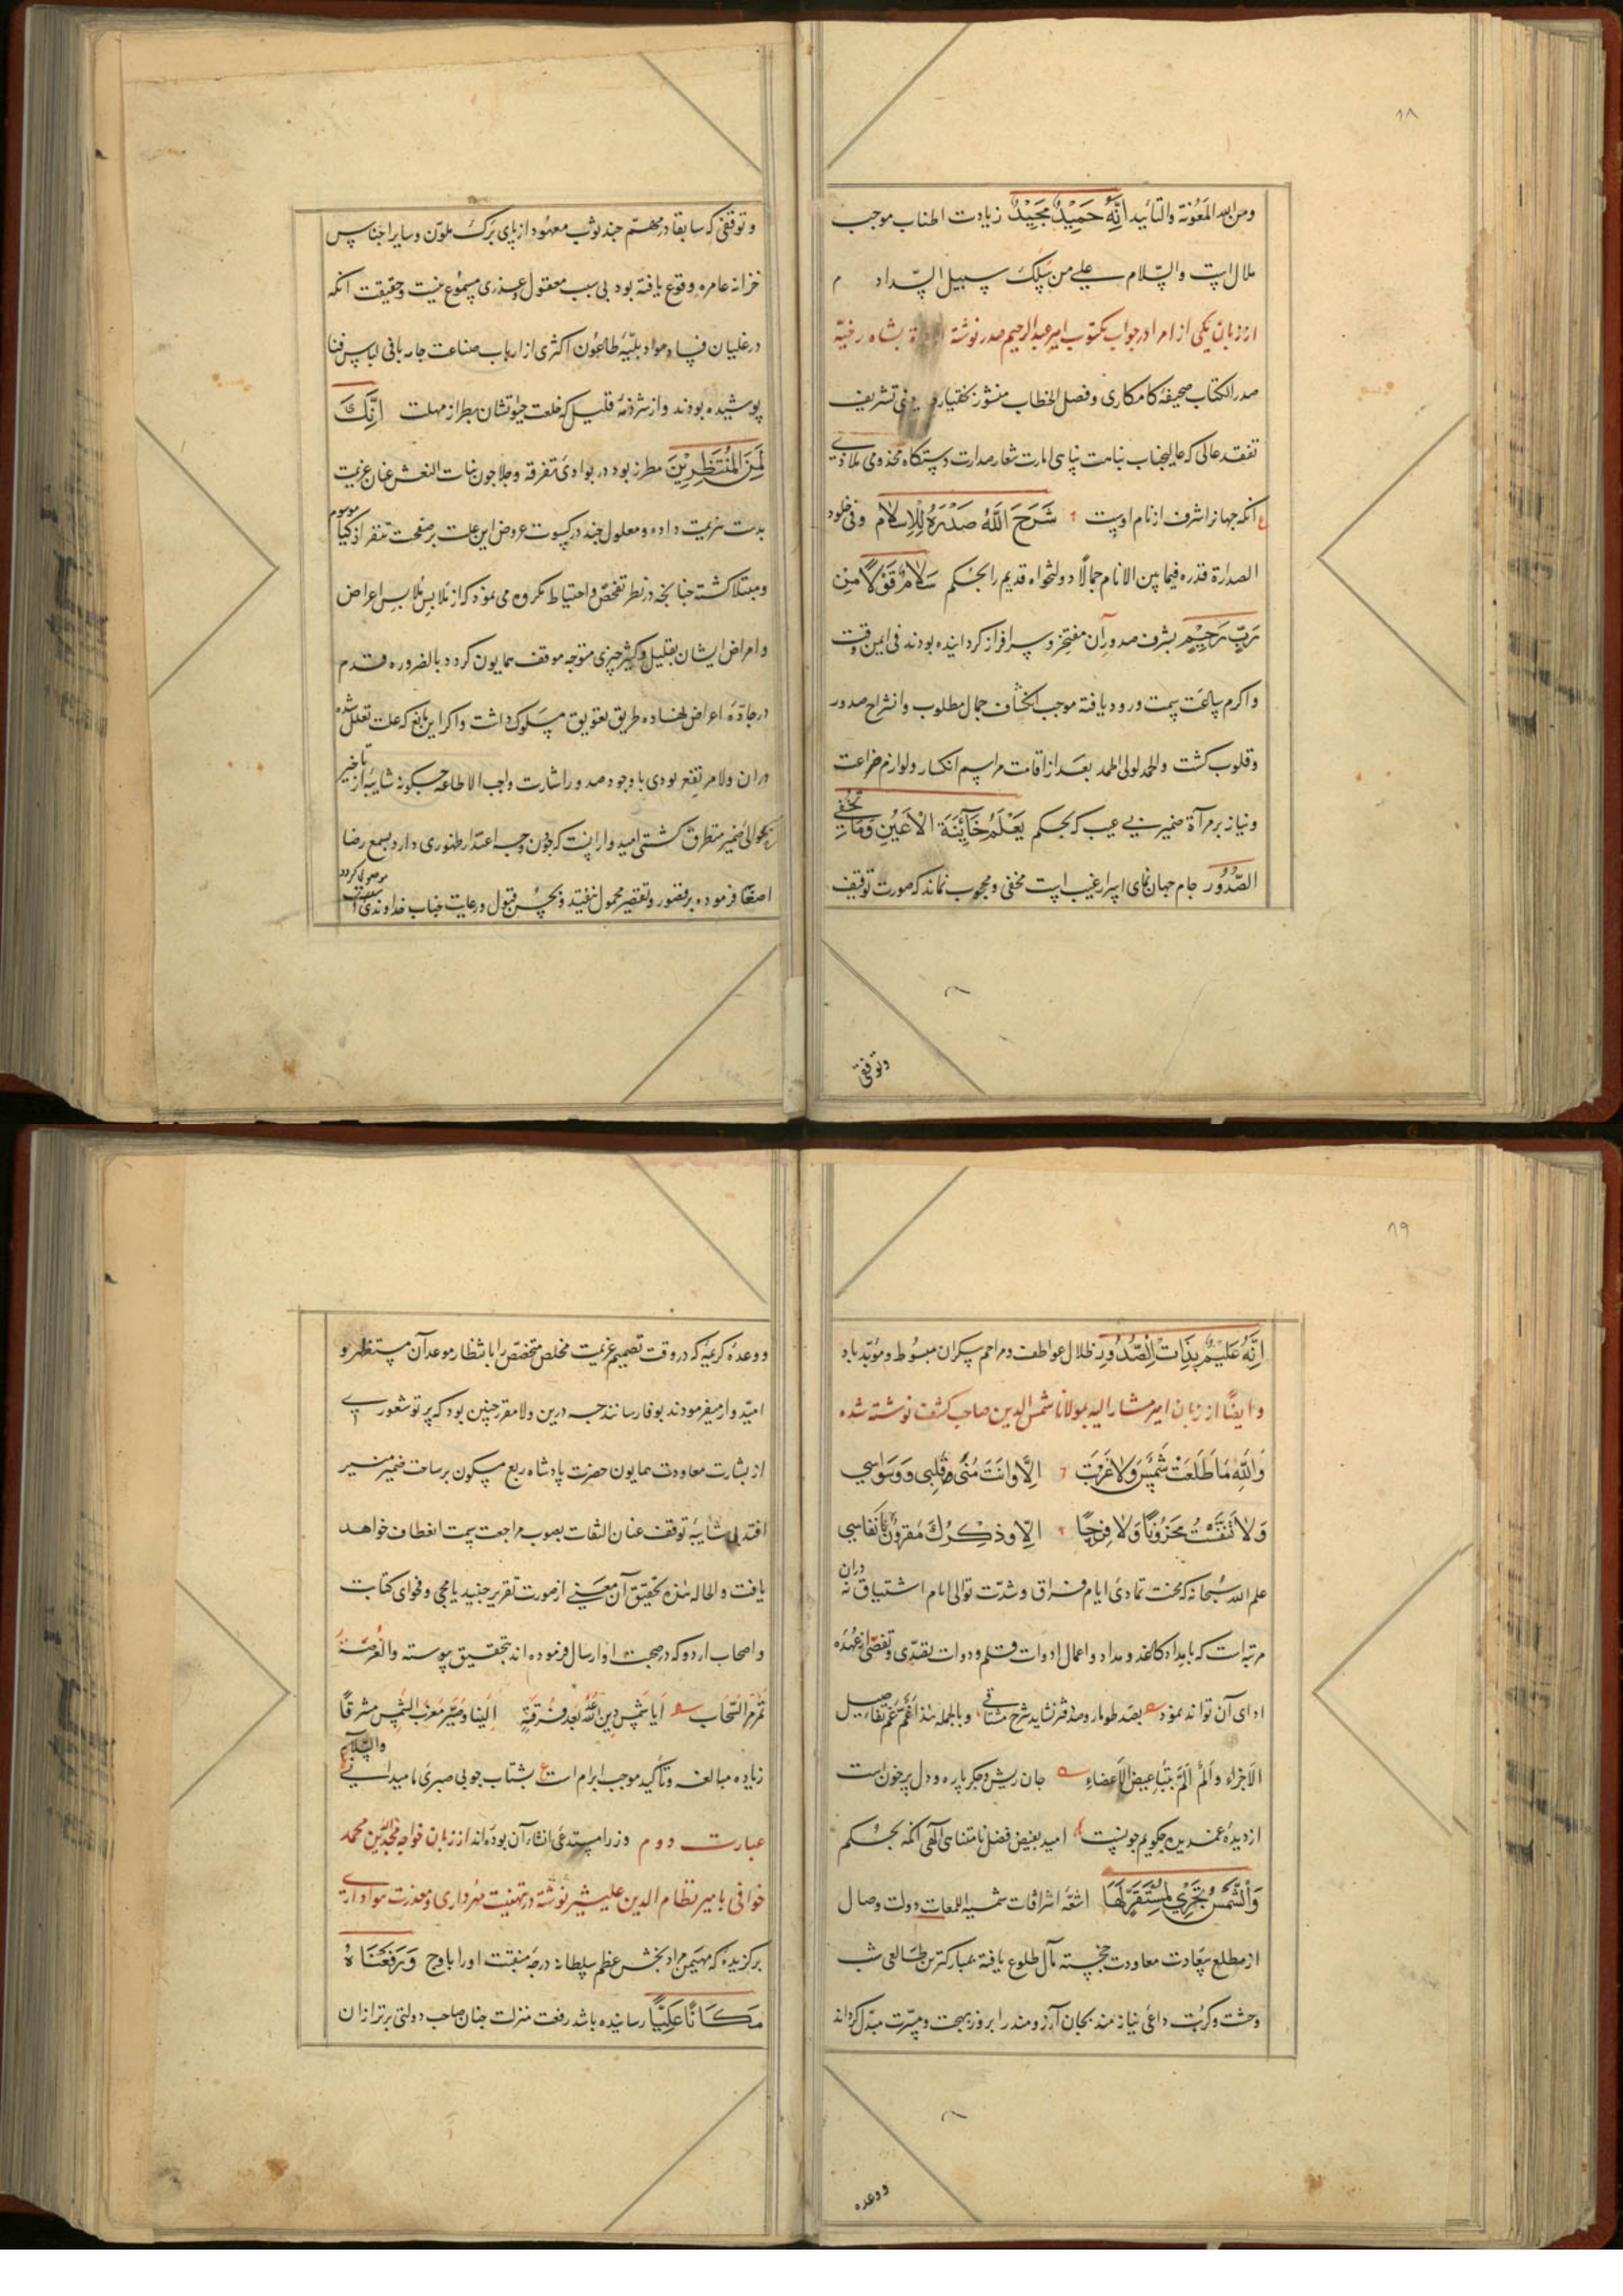 ۸۸
ومن الله المعونة والتأیید اِنَّهُ حَمِیْدٌ مَجِیْدٌ زیادت اطناب موجب
ملال است والسّلام علی من سلک سبیل السّداد م
از زبان یکی از امرا در جواب مکتوب امیر عبدالرحیم صدر نوشته بشاه رفته
صدر الکتاب صحیفهٔ کامکاری و فصل الخطاب منشور بختیاری یعنی تشریف
تفقد عالی که عالیجناب نیابت پناهی امارت شعار صدارت دستگاه مخدومی ملاذی
ع آنکه جهانرا شرف از نام اوست شَرَحَ اللّٰهُ صَدْرَهُ لِلْاِسْلَام وفی خلود
الصدارة قدره فیما بین الانام جمالًا دولتخواه قدیم را بحکم سَلَامٌ قَوْلًا مِنْ
رَبٍّ رَحِیْمٍ بشرف صدور آن مفتخر و سرافراز گردانیده بودند فی ایمن وقت
واکرم ساعت سمت ورود یافته موجب انکشاف جمال مطلوب و انشراح صدور
وقلوب کشت والحمد لولی الحمد بعد از اقامت مراسم انکسار و لوازم ضراعت
ونیاز بر مرآة ضمیر بی عیب که بحکم یَعْلَمُ خَائِنَةَ الْاَعْیُنِ وَمَا تُخْفِی
الصُّدُوْر جام جهان نمای اسرار غیب است مخفی و محجوب نماند که صورت توقیف
وتوقفی
وتوقفی که سابقا در مهمّ چند ثوب معهود از پای برک ملوّن و سایر اجناس
خزانه عامره وقوع یافته بود بی سبب معقول و عذری مسموع نیست و حقیقت آنکه
در غلیان فساد مواد بلیّهٔ طاعون اکثری از ارباب صناعت جامه بافی لباس فنا
پوشیده بودند و از شرذمهٔ قلیل که خلعت حیوتشان بطراز مهلت اِنَّکَ
لَمِنَ الْمُنْتَظَرِیْنَ مطرز بود در بوادی تفرقه و جلا چون بنات النعش عنان عزیمت
بدست هزیمت داده و معلول چند در کسوت عروض این علت بر صفحت تنفر اذکیا موسوم
ومبتلا کشته چنانچه در نظر تفحّص و احتیاط مکروه می نمود که از ملابس ملابس اعراض
وامراض ایشان بقلیل و کثیر چیزی متوجه موقف همایون کردد بالضروره قدم
در جادّهٔ اعراض نهاده طریق تعویق مسلوک داشت و اکر این مانع که علت تعلل شده
دران ولا مرتفع بودی با وجود صدور اشارت واجب الاطاعه چکونه شایبه از تاخیر
بحوالی ضمیر متطرق کشتی امیدوار است که چون وجه اعتذار ظهوری دارد بسمع رضا
اصغا فرموده بر قصور و تقصیر محمول نیفتد و بحسن قبول و رعایت جناب خداوندی موصول کردد
۸۹
اِنَّهُ عَلِیْمٌ بِذَاتِ الصُّدُوْرِ ظلال عواطف و مراحم بیکران مبسوط و مؤیّد باد
وایضًا از زبان امیر مشار الیه بمولانا شمس الدین صاحب کشف نوشته شده
وَاللّٰهِ مَا طَلَعَتْ شَمْسٌ وَلَا غَرَبَتْ اِلَّا وَاَنْتَ مُنٰی قَلْبِی وَوَسْوَاسِی
وَلَا تَنَفَّسْتُ مَحْزُوْنًا وَلَا فَرِحًا اِلَّا وَذِکْرُکَ مَقْرُوْنٌ بِاَنْفَاسِی
علم الله سُبحانه که محنت تمادی ایام فراق و شدّت توالی ایام اشتیاق نه دران
مرتبه است که بامداد کاغذ و مداد و اعمال ادوات قلم و دوات تقصّی از عهده
ادای آن تواند نمود بصد طومار و صد دفتر نشاید شرح مشتاقی وبالجمله تفاصیل
الاجزاء و الم بتباعیض الاعضاء جان ریش و جکر پاره و دل پر خون است
از دیده غمدیده چکویم چونست امید بفیض فضل نامتناهی الٰهی آنکه بحکم
وَالشَّمْسُ تَجْرِیْ لِمُسْتَقَرٍّ لَهَا اشعّهٔ اشراقات شمسیة اللمعات دولت وصال
از مطلع سعادت معاودت خجسته مآل طلوع یافته بمبارکترین طالعی شب
وحشت و کربت داعی نیازمند بجان آرزومند را بروز بهجت و مسرّت مبدّل کرداند
ووعده
ووعدهٔ کریمه که در وقت تصمیم عزیمت مخلص متخصّص را بانتظار موعد آن مستظهر و
امیدوار میفرمودند بوفا رسانند چه درین ولا مقرر چنین بود که پرتو شعوری
از بشارت معاودت همایون حضرت پادشاه ربع مسکون بر ساحت ضمیر منیر
افتد بی شایبهٔ توقف عنان التفات بصوب مراجعت سمت انعطاف خواهد
یافت والحاله هذه تحقیق آن معنی از صورت تقریر جنید یامجی و فحوای کتابت
واصحاب اردو که در صحبت او ارسال فرموده اند بتحقیق پیوسته والفرصة
تمرّ مرّ السّحاب اَیَا شَمْسَ دِیْنِ اللّٰهِ بَعْدَ فُرْقَةٍ اِلَیْنَا مغرب الشمس مشرقًا
زیاده مبالغه و تأکید موجب ابرام است ع بشتاب چو بی صبری ما میدانی والسّلام
عبارت دوم وزرا مستدعی انشاء آن بوده اند از زبان خواجه مجدالدّین محمد
خوافی بامیر نظام الدین علیشیر نوشته در تهنیت مهرداری و معذرت
برکزیدهٔ که مهیمن مراد بخش عظم سلطانه درجهٔ منقبت اورا باوج وَرَفَعْنَاهُ
مَکَانًا عَلِیًّا رسانیده باشد رفعت منزلت چنان صاحب دولتی برتر از ان